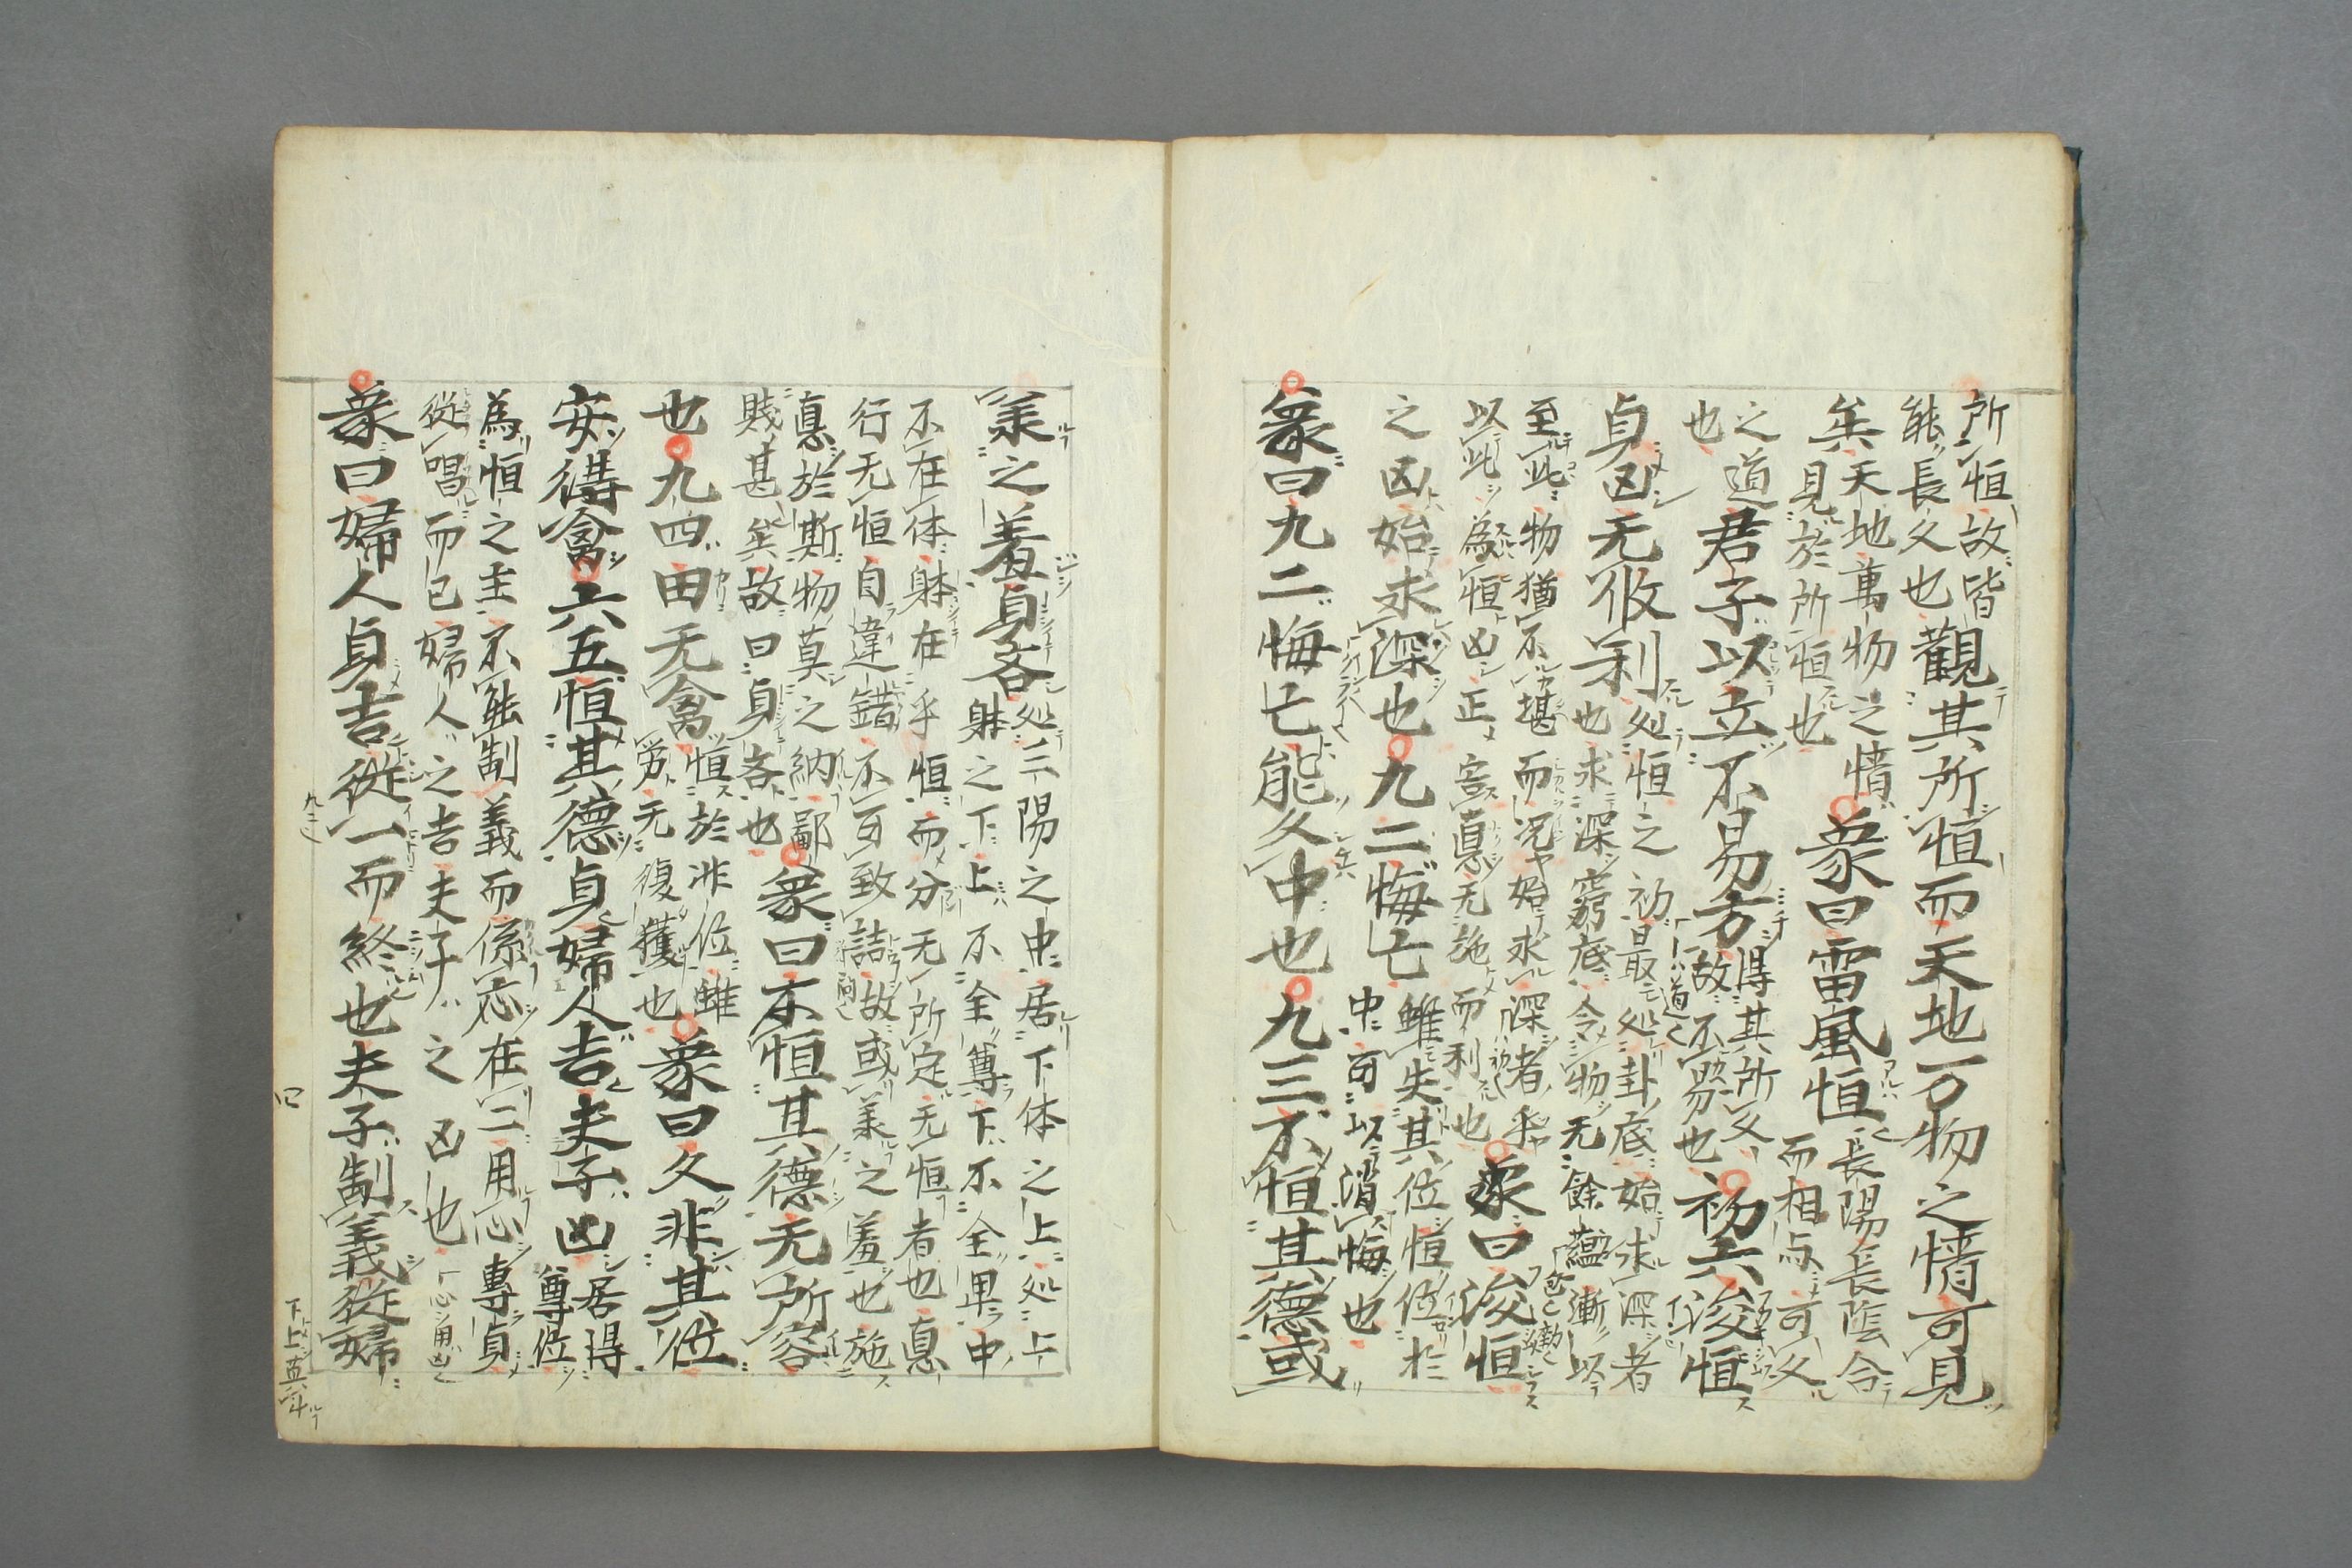 所恒故皆
能長久也
觀其所恒而天地万物之情可見
矣
天地萬物之情
見於所恒也
象曰雷風恒
長陽長陰合
而相与可久
之道
也
君子以立不易方
得其所久
故不易也
初六浚恒
貞凶无攸利
処恒之初最処卦底始求深者
也求深窮底令物无餘蘊漸以
至此物猶不堪而况始求深者乎
以此為恒凶正害悳无施而利也
象曰浚恒
之凶始求深也
九二悔亡
雖失其位恒位於
中可以消悔也
象曰九二悔亡能久中也
九三不恒其德或
羕之羞貞吝
処三陽之中居下体之上処上
躰之下上不全尊下不全卑中
不在体躰在乎恒而分无所定无恒者也悳
行无恒自違錯不可致詰故或羕之羞也施
悳於斯物莫之納鄙
賎甚矣故曰貞吝也
象曰不恒其德无所容
也
九四田无禽
恒於非位雖
劳无復獲也
象曰久非其位
安得禽
六五恒其德貞婦人吉夫子凶
居得
尊位
為恒之主不能制義而係応在二用心專貞
從唱而已婦人之吉夫子之凶也
象曰婦人貞吉從一而終也夫子制義從婦